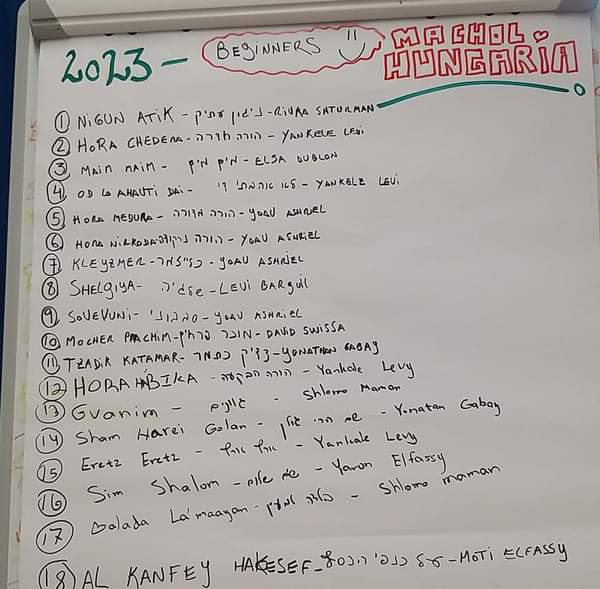 2023 - BEGINNERS MACHOL HUNGARIA
① NIGUN ATIK - ניגון עתיק - RIVKA SHTURMAN
② HORA CHEDERA - הורה חדרה - YANKELE LEVI
③ MAIN MAIM - מים מים - ELSA DUBLON
④ OD LO AHAUTI DAI - לא אהבתי די - YANKELE LEVI
⑤ HORA MEDURA - הורה מדורה - YOAV ASHRIEL
⑥ HORA NIRKODA - הורה נרקודה - YOAV ASHRIEL
⑦ KLEYZMER - כלייזמר - YOAV ASHRIEL
⑧ SHELGIYA - שלגיה - LEVI BARGUIL
⑨ SOVEVUNI - סבבוני - YOAV ASHRIEL
⑩ MOCHER PRACHIM - מוכר פרחים - DAVID SWISSA
⑪ TZADIK KATAMAR - צדיק כתמר - YONATHAN GABAY
⑫ HORA HABIKA - הורה הבקעה - Yankale Levy
⑬ Gvanim - גוונים - Shlomo Maman
⑭ Sham Harei Golan - שם הרי גולן - Yonatan Gabay
⑮ Eretz Eretz - ארץ ארץ - Yankale Levy
⑯ Sim Shalom - שים שלום - Yaron Elfassy
⑰ Balada La'maayan - בלדה למעין - Shlomo maman
⑱ AL KANFEY HAKESEF - על כנפי הכסף - MOTI ELFASSY